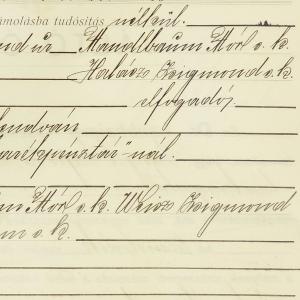 ámolásba tudósítás nélkül.
nd úr Mandlbaum Mór s. k.
Haházs Zsigmond s. k.
elfogadó.
lendván
arékpénztár"-nál.
m Mór s. k. Weisz Zsigmond
m s. k.